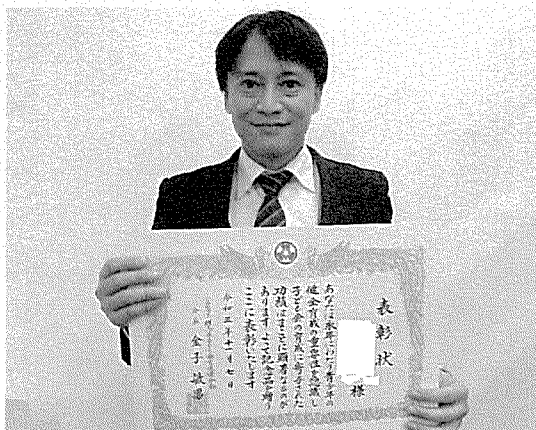 表彰状
様
あなたは永年にわたり青少年の
健全育成の重要性を認識し
子ども会の育成に寄与された
功績はまことに顕著なものが
あります ここに記念品を贈り
ここに表彰いたします
令和三年十一月七日
会長 金子 敏男